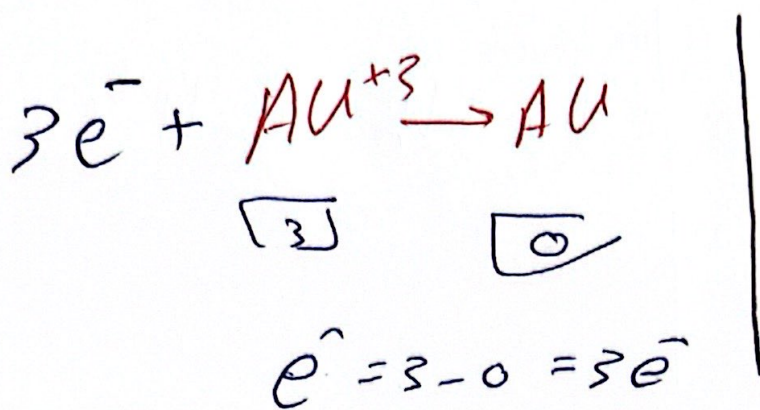 3e⁻ + AU⁺³ → AU
3 0
e⁻ = 3 - 0 = 3e⁻